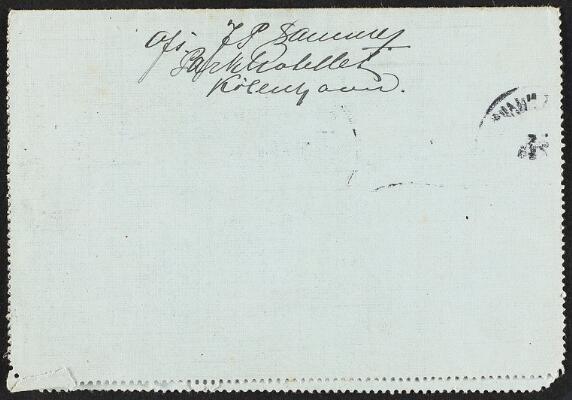 Afs. F P Sammes
Parkhotellet
København.